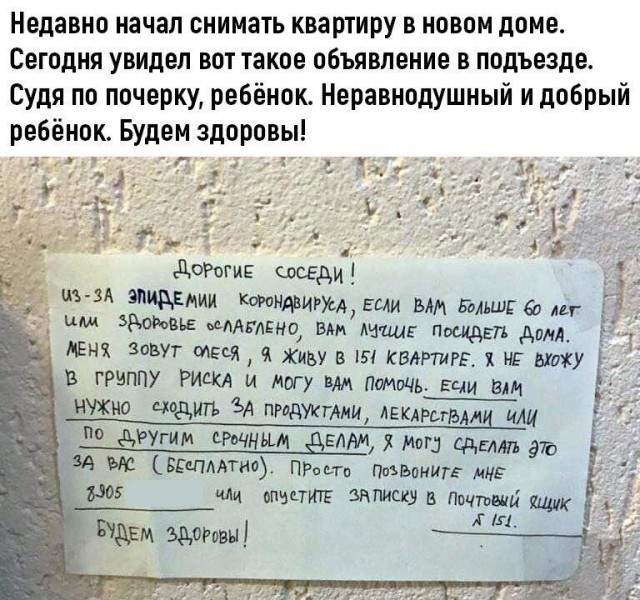 Недавно начал снимать квартиру в новом доме.
Сегодня увидел вот такое объявление в подъезде.
Судя по почерку, ребёнок. Неравнодушный и добрый
ребёнок. Будем здоровы!
ДОРОГИЕ СОСЕДИ!
ИЗ-ЗА ЭПИДЕМИИ КОРОНАВИРУСА, ЕСЛИ ВАМ БОЛЬШЕ 60 ЛЕТ
ИЛИ ЗДОРОВЬЕ ОСЛАБЛЕНО, ВАМ ЛУЧШЕ ПОСИДЕТЬ ДОМА.
МЕНЯ ЗОВУТ ОЛЕСЯ, Я ЖИВУ В 151 КВАРТИРЕ. Я НЕ ВХОЖУ
В ГРУППУ РИСКА И МОГУ ВАМ ПОМОЧЬ. ЕСЛИ ВАМ
НУЖНО СХОДИТЬ ЗА ПРОДУКТАМИ, ЛЕКАРСТВАМИ ИЛИ
ПО ДРУГИМ СРОЧНЫМ ДЕЛАМ, Я МОГУ СДЕЛАТЬ ЭТО
ЗА ВАС (БЕСПЛАТНО). ПРОСТО ПОЗВОНИТЕ МНЕ
8905 ИЛИ ОПУСТИТЕ ЗАПИСКУ В ПОЧТОВЫЙ ЯЩИК
№ 151.
БУДЕМ ЗДОРОВЫ!